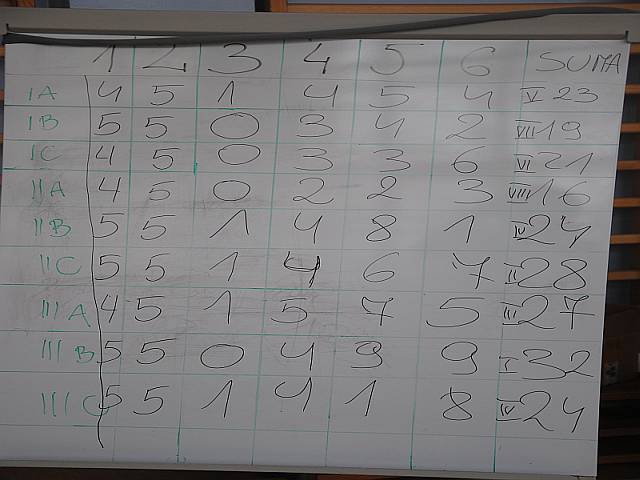 1 2 3 4 5 6 SUMA
IA 4 5 1 4 5 4 V 23
IB 5 5 0 3 4 2 VII 19
IC 4 5 0 3 3 6 VI 21
IIA 4 5 0 2 2 3 VIII 16
IIB 5 5 1 4 8 1 IV 24
IIC 5 5 1 4 6 7 II 28
IIIA 4 5 1 5 7 5 III 27
IIIB 5 5 0 4 9 9 I 32
IIIC 5 5 1 4 1 8 IV 24